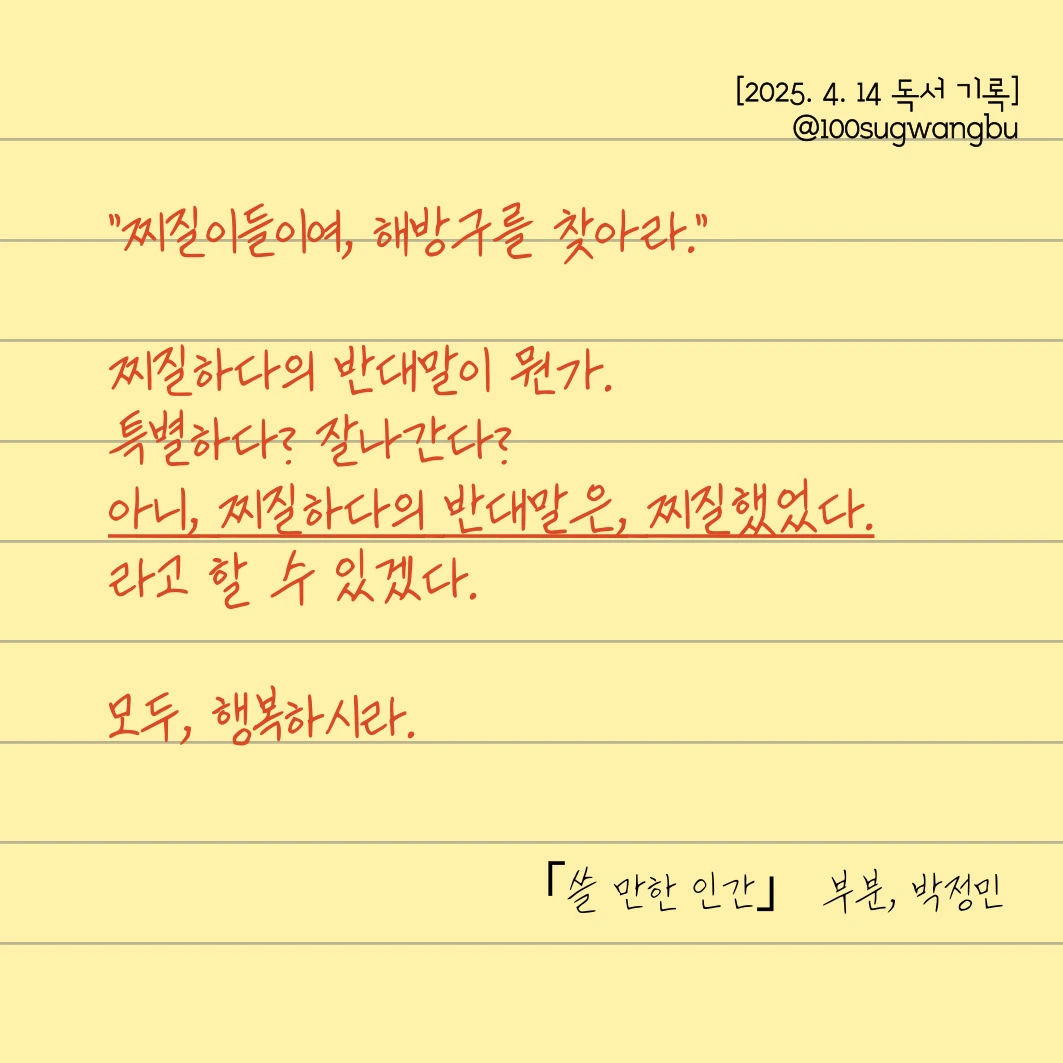 [2025. 4. 14 독서 기록]
@100sugwangbu
"찌질이들이여, 해방구를 찾아라."
찌질하다의 반대말이 뭔가.
특별하다? 잘나간다?
아니, 찌질하다의 반대말은, 찌질했었다.
라고 할 수 있겠다.
모두, 행복하시라.
「쓸 만한 인간」 부분, 박정민